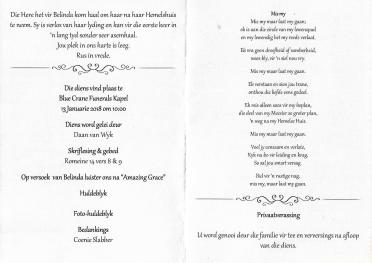 Die Here het vir Belinda kom haal om haar na haar Hemelshuis
te neem. Sy is verlos van haar lyding en kan vir die eerste keer in
'n lang tyd sonder seer asemhaal.
Jou plek in ons harte is leeg.
Rus in vrede.
Die diens vind plaas te
Blue Crane Funerals Kapel
15 Januarie 2018 om 10:00
Diens word gelei deur
Daan van Wyk
Skriflesing & gebed
Romeine 14 vers 8 & 9
Op versoek van Belinda luister ons na "Amazing Grace"
Huldeblyk
Foto-huldeblyk
Bedankings
Coenie Slabber
Mis my
Mis my maar laat my gaan;
ek is aan die einde van my lewenspad
en my lewenslig het my reeds verlaat.
Ek vra geen droefheid of somberheid,
want bly, vir 'n siel nou vry.
Mis my maar laat my gaan.
Ek verstaan as jy sou treur,
onthou die liefde eens gedeel.
Mis my maar laat my gaan.
Ek reis alleen soos vir my beplan,
die deel van my Meester se groter plan,
'n weg na my Hemelse Huis.
Mis my maar laat my gaan.
Voel jy eensaam en verlate,
Kyk na die vir leiding en krag,
So sal jou smart vervaag.
Bid vir 'n rustige nag,
mis my, maar laat my gaan.
Privaatverassing
U word genooi deur die familie vir tee en verversings na afloop
van die diens.